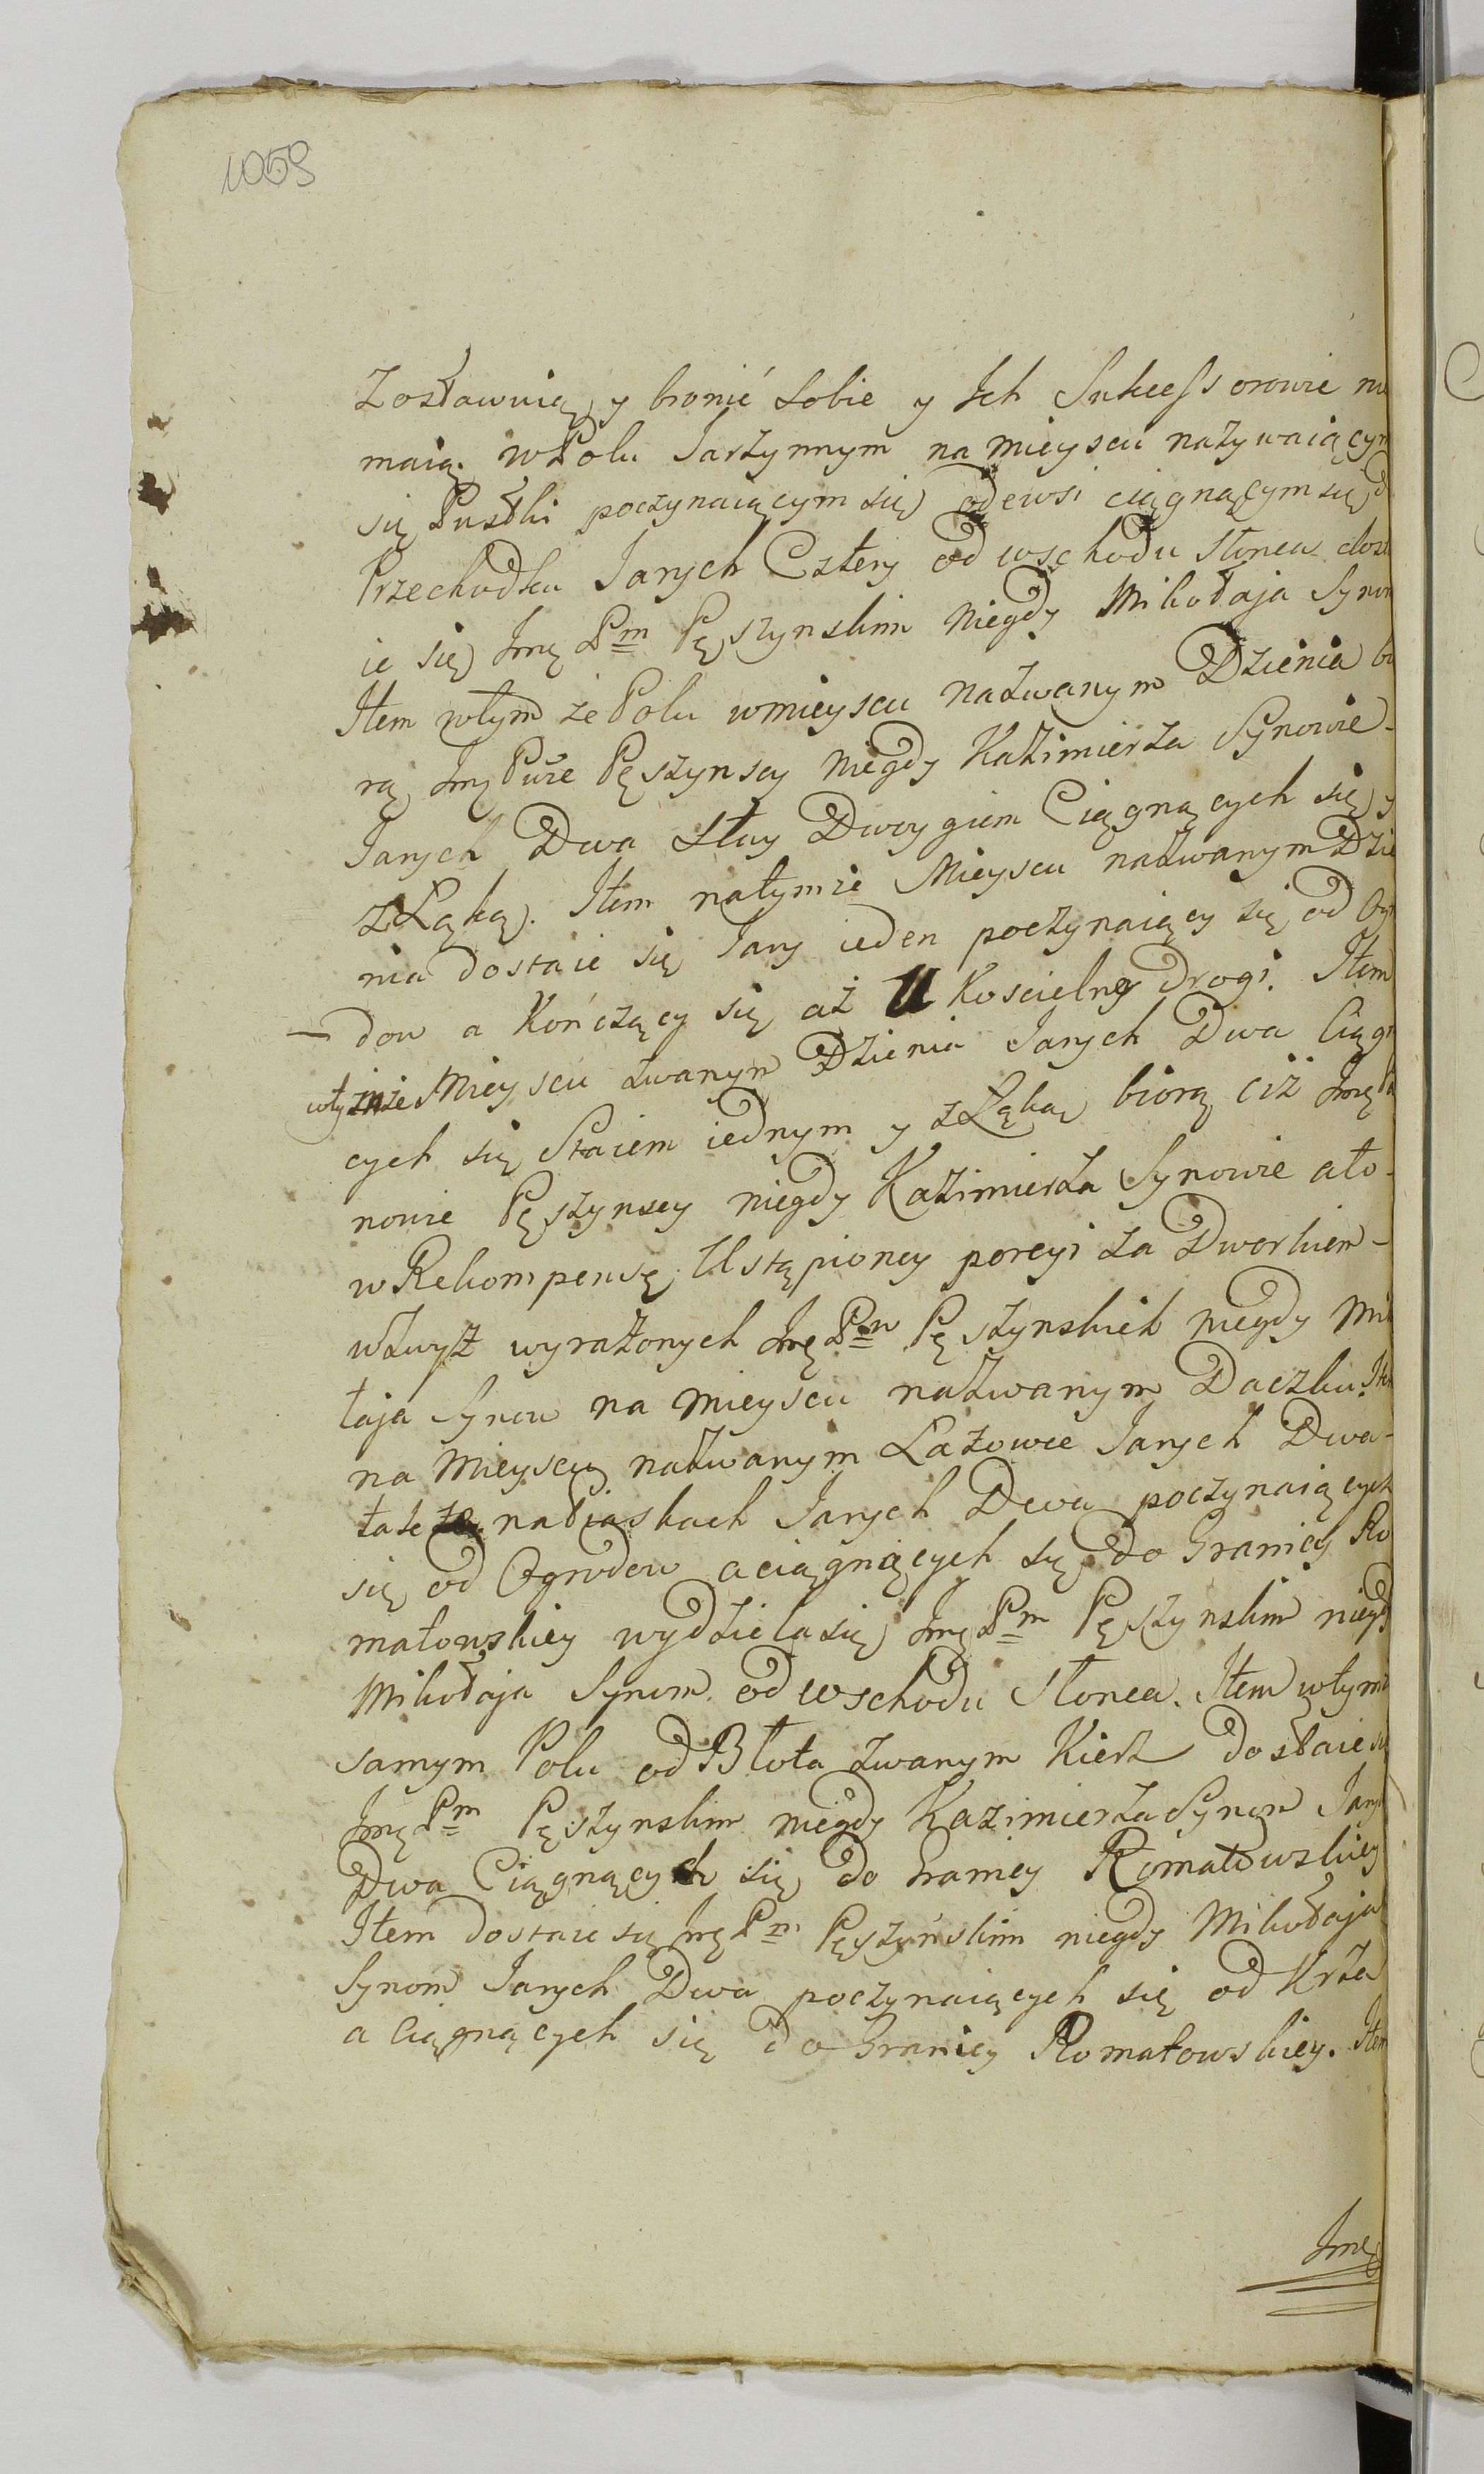 1059
Zostawuią y bronić sobie y Ich Sukcessorowie
maią. w Polu Jarzynnym na mieyscu nazywaiącym
się Pustki poczynaiącym się odewsi ciągnącym się d
Przechodku Janych Cztery od wschodu słonca dosta
ie się Imę Pm Pęszynskim niegdy Mikołaja Synom
Item wtym że Polu wmieyscu nazwanym Dzienia bi
rą Imę Pnie Pęszynscy niegdy Kazimierza Synowie
Janych Dwa Stay Dwoygiem Ciągnących się y
z Łąką. Item natymże Mieyscu nazwanym Dzie
nia dostaie się Jany ieden poczynaiący się od Ogr
dow a Kończący się aż U Koscielney Drogi. Item
wtymże Mieyscu zwanym Dzienia Janych Dwa Ciągn
cych się Staiem iednym y z Łąką biorą ciż Imę
nowie Pęszynscy niegdy Kazimierza Synowie ato
w Rekompensę Ustąpioney porcyi za Dworkiem
wzwyż wyrażonych Imę Pn Pęszynskich niegdy Mik
łaja Synow na mieyscu nazwanym Daczku. Item
na Mieyscu nazwanym Łazowie Janych Dwa
także na Piaskach Janych Dwa poczynaiących
się od Ogrodow aciągnących się do Granicy Ro
matowskiey wydziela się Imę Pm Pęszynskim niegdy
Mikołaja Synom od wschodu Słonca. Item wtymż
samym Polu od Błota zwanym Kierz dostaie się
Imę Pm Pęszynskim niegdy Kazimierza Synom Jany
Dwa Ciągnących się do Granicy Romatowskiey
Item dostaie się Imę Pm Pęszyńskim niegdy Mikołaja
Synom Janych Dwa poczynaiących się od Krza
a Ciągnących się do Granicy Romatowskiey. Item
Imę